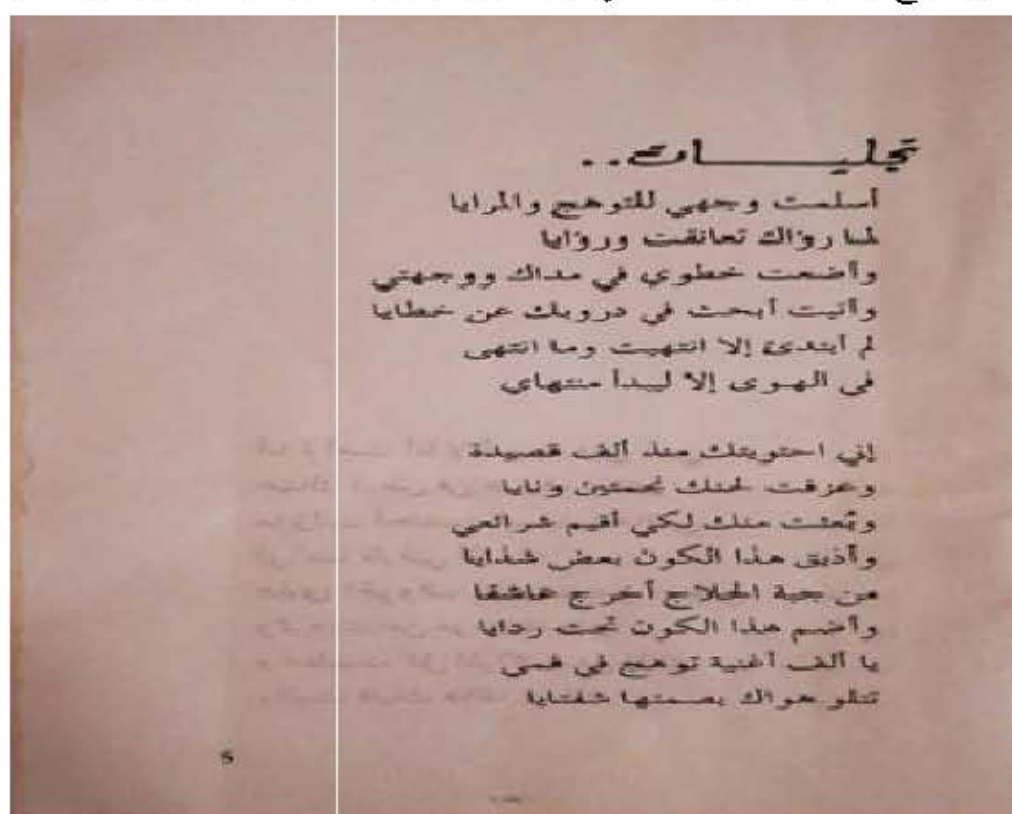 تجليـــــات..
أسلمت وجهي للتوهج والمرايا
لما رؤاك تعانقت ورؤايا
وأضعت خطوي في مداك ووجهتي
وأتيت أبحث في دروبك عن خطايا
لم أبتدئ إلا انتهيت وما انتهى
في الهوى إلا ليبدأ منتهاي
إني احتويتك منذ ألف قصيدة
وعزفت لحنك نجمتين ونايا
وبعثت منك لكي أقيم شرائعي
وأذيق هذا الكون بعض شذايا
من جبة الحلاج أخرج عاشقا
وأضم هذا الكون تحت ردايا
يا ألف أغنية توهج في فمي
تتلو هواك بصمتها شفتايا
5